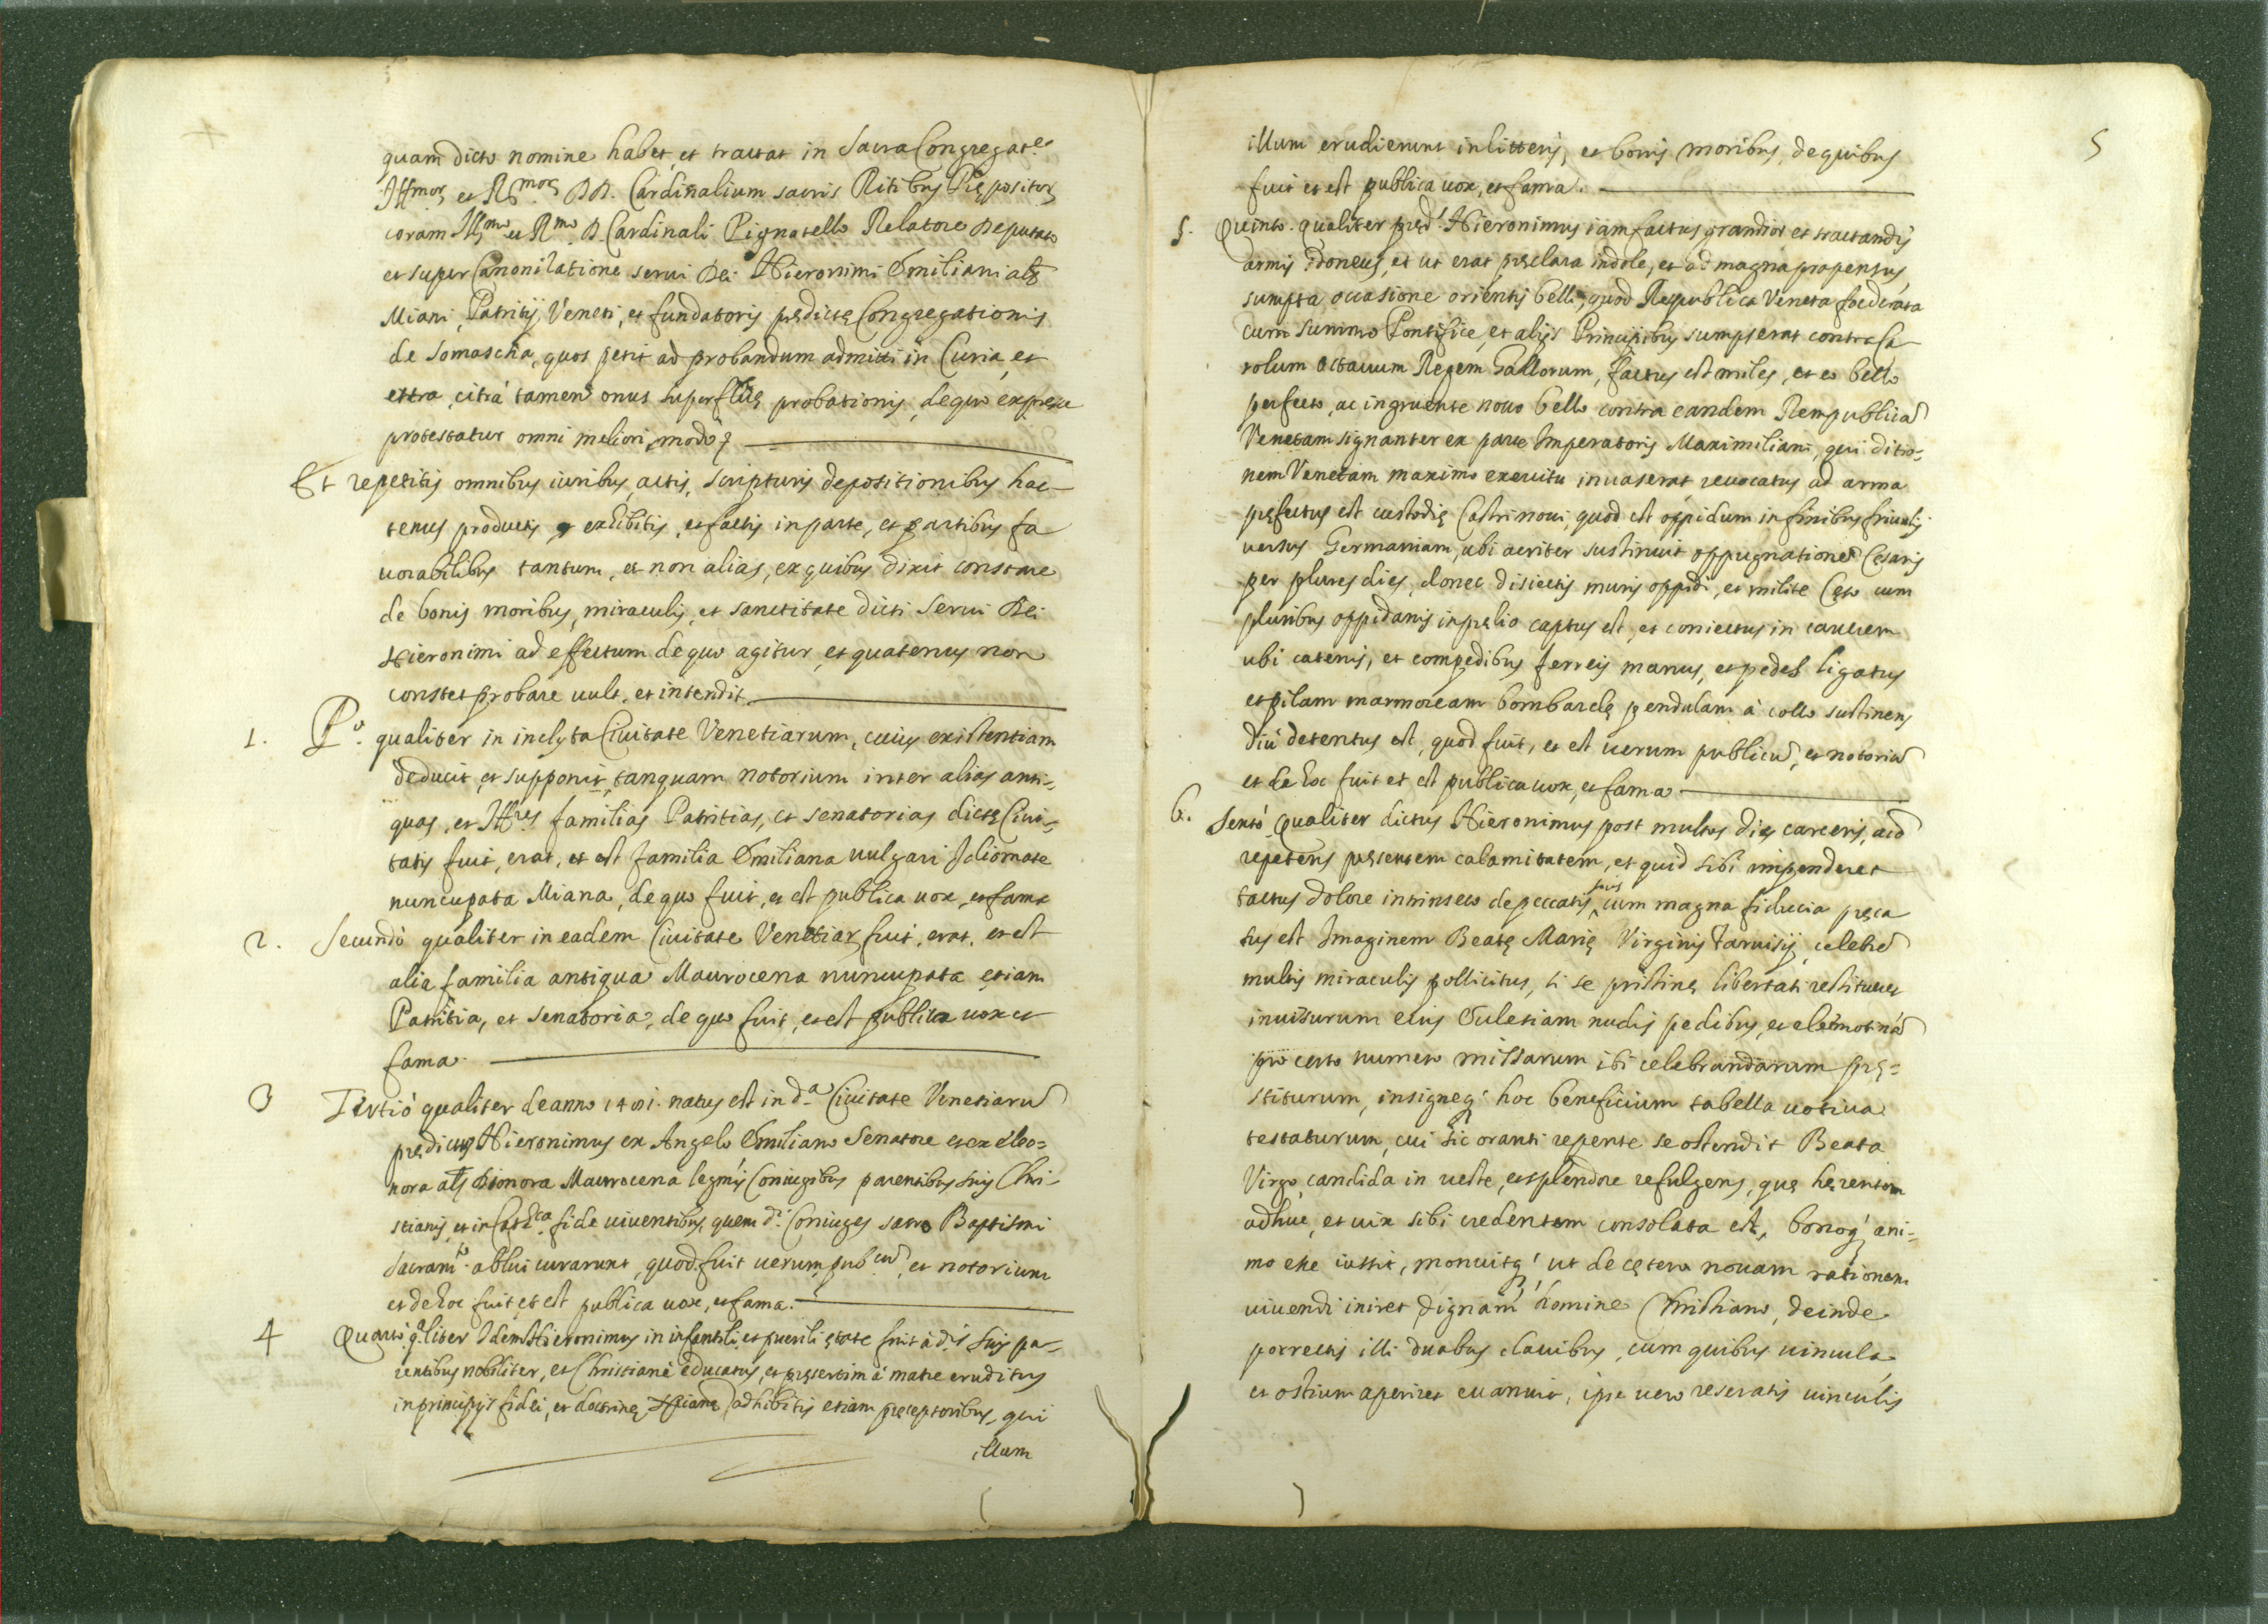 quam dicto nomine habet et tractat in Sacra Congregat.e
Ill.mor. et R.mor. DD. Cardinalium sacris Ritibus Prępositor.
coram Ill.mo et R.mo D. Cardinali Pignatello Relatore Deputato
et super Canonizatione serui Dei Hieronimi Emiliani als
Miani, Patritij Veneti, et fundatoris prędictę Congregationis
de Somascha, quos petit ad probandum admitti in Curia, et
extra, citrà tamen onus superfluę probationis, de quo expresse
protestatur omni meliori modo
Et repetitis omnibus iuribus, actis, scripturis depositionibus hac-
tenus productis et exhibitis, et factis in parte, et partibus fa
uorabilibus tantum, et non alias, ex quibus dixit constare
de bonis moribus, miraculis, et sanctitate dicti Serui Dei
Hieronimi ad effectum de quo agitur, et quatenus non
constet probare uult, et intendit.
1. P.o qualiter in inclyta Ciuitate Venetiarum, cuius existentiam
deducit, et supponit tanquam notorium inter alias anti-
quas, et Ill.res familias Patritias, et senatorias dictę Ciui-
tatis fuit, erat, et est familia Emiliana uulgari Idiomate
nuncupata Miana, de quo fuit, et est publica uox, et fama
2. Secundò qualiter in eadem Ciuitate Venetiar. fuit, erat, et est
alia familia antiqua Maurocena nuncupata etiam
Patritia, et senatoria, de quo fuit, et est publica uox et
fama.
3 Tertiò qualiter de anno 1481. natus est in d.a Ciuitate Venetiarũ
prędictus Hieronimus ex Angelo Emiliano Senatore et ex eleo-
nora als Dionora Maurocena legmis Coniugibus parentibus suis Chri-
stianis, et in Cath.ca fide uiuentibus, quem d.i Coniuges sacro Baptismi
Sacram.to ablui curarunt, quod fuit uerum, pub.cũ, et notorium
et de hoc fuit et est publica uox, et fama.
4 Quartò q.aliter Idem Hieronimus in infantili, et puerili ętate fuit à d.is suis pa-
rentibus nobiliter, et Christianè educatus, et pręsertim à matre eruditus
in principijs fidei, et doctrinę Xpianę adhibitis etiam pręceptoribus, qui
illum
5
illum erudierunt in litteris, et bonis moribus, de quibus
fuit et est publica uox, et fama.
5. Quinto. qualiter pręd.s Hieronimus iam factus grandior et tractandis
armis idoneus, et ut erat pręclara indole, et ad magna propensus,
sumpta occasione orientis belli, quod Respublica Veneta foederata
cum Summo Pontifice, et alijs Principibus sumpserat contra Ca
rolum octauum Regem Gallorum, factus est miles, et eo bello
perfecto, ac ingruente nouo bello contra eandem Rempublicã
Venetam signanter ex parte Imperatoris Maximiliani, qui ditio-
nem Venetam maximo exercitu inuaserat reuocatus ad arma
pręfectus est custodię Castrinoui, quod est oppidum in finibus friulis
uersus Germaniam, ubi acriter sustinuit oppugnationẽ Cęsaris
per plures dies, donec disiectis muris oppidi, et milite Cęso cum
pluribus oppidanis in pręlio captus est, et coniectus in carcerem
ubi catenis, et compedibus ferreis manus, et pedes ligatus
et pilam marmoream bombardę pendulam à collo sustinens
diù detentus est, quod fuit, et est uerum publicũ, et notoriũ
et de hoc fuit et est publica uox, et fama
6. Sextò. Qualiter dictus Hieronimus post multos dies carceris,
repetens pręsentem calamitatem, et quid sibi impenderet
tactus dolore intrinseco de peccatis suis cum magna fiducia pręca
tus est Imaginem Beatę Marię Virginis Taruisij, celebrẽ
multis miraculis pollicitus, si se pristinę libertati restitueret
inuisurum eius Ecclesiam nudis pedibus, et eleèmosinã
pro certo numero missarum ibi celebrandarum prę-
stiturum, insigneq. hoc beneficium tabella uotiua
testaturum, cui sic oranti repente se ostendit Beata
Virgo candida in ueste, et splendore refulgens, quę hęrentem
adhuc, et uix sibi credentem consolata est, bonoq. ani-
mo esse iussit, monuitq. ut de cętero nouam rationem
uiuendi iniret dignam homine Christiano, deinde
porrectis illi duabus clauibus, cum quibus uincula
et ostium aperiret euanuit, ipse uero reseratis uinculis